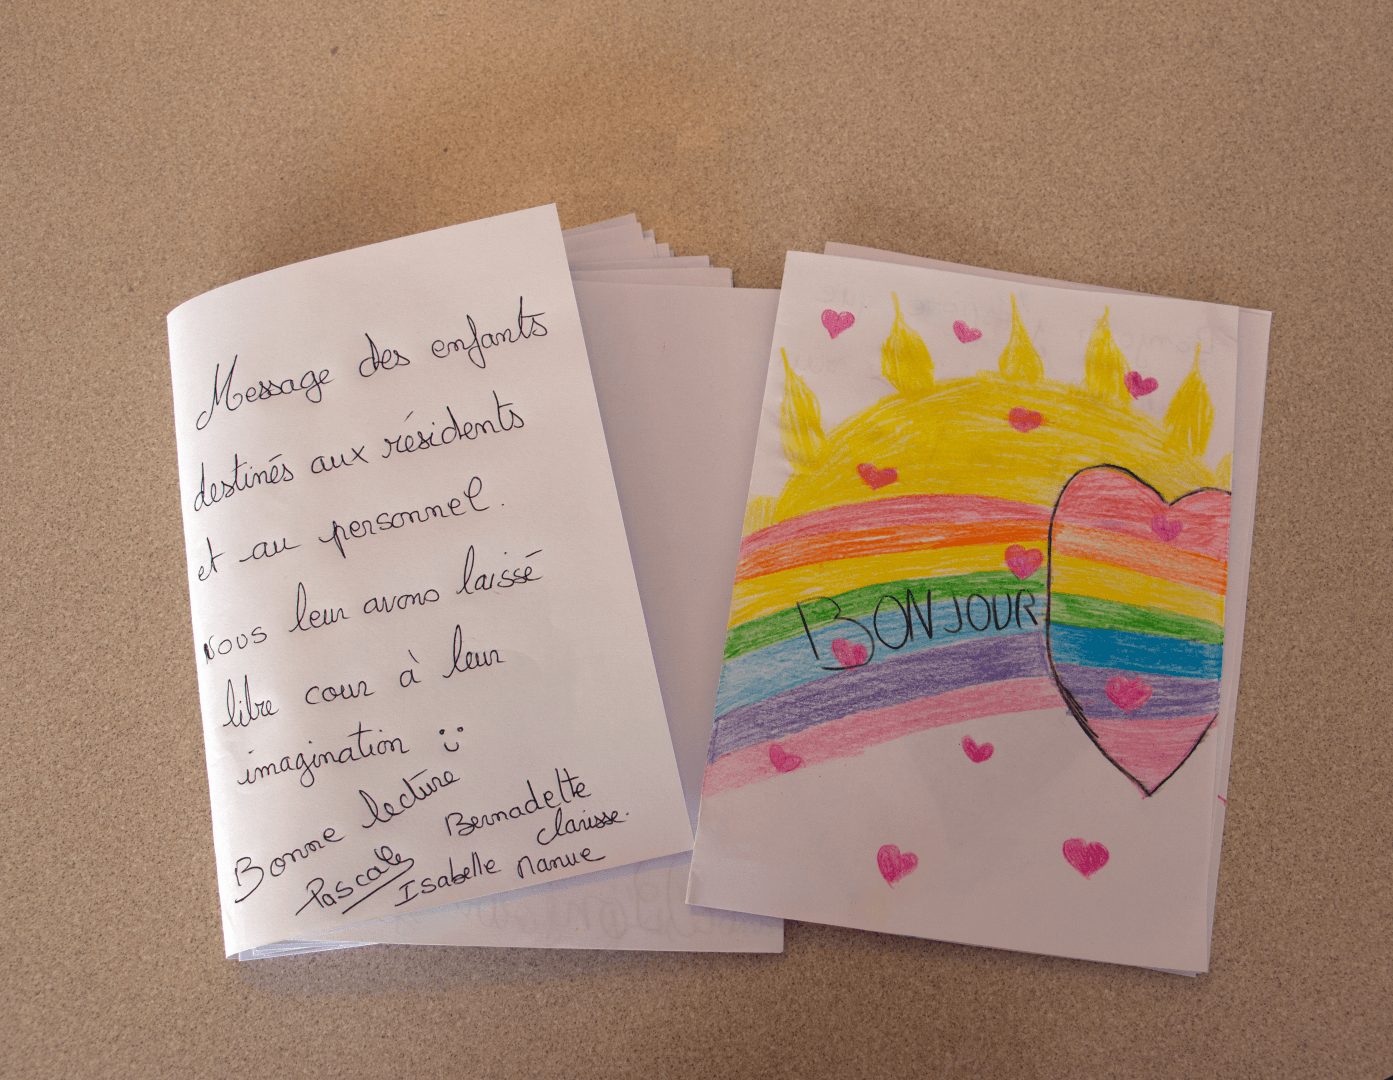 Message des enfants
destinés aux résidents
et au personnel.
Nous leur avons laissé
libre cour à leur
imagination :)
Bonne lecture
Bernadette
Clarisse.
Pascale
Isabelle Manue
BONJOUR